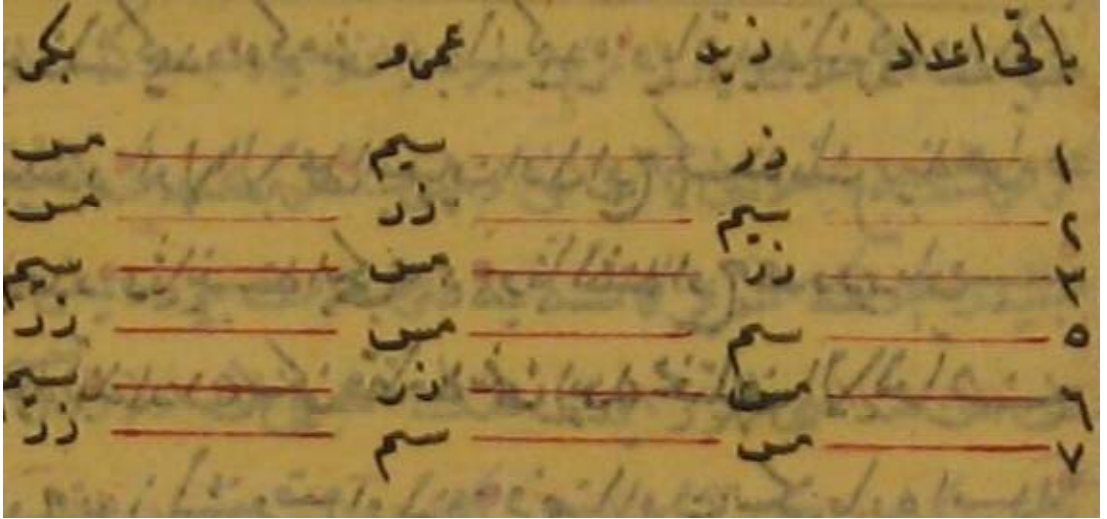 باقی اعداد زید عمرو بکر
۱ زر سیم مس
۲ سیم زر مس
۳ زر مس سیم
۵ سیم مس زر
۶ مس زر سیم
۷ مس سیم زر